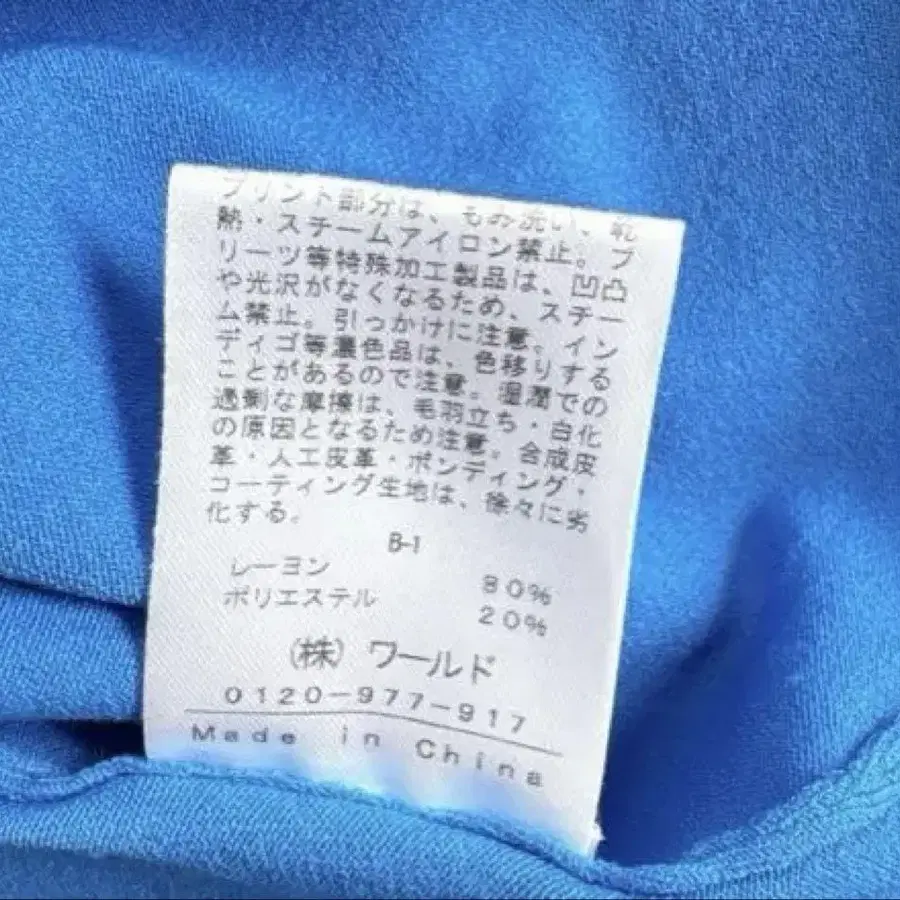 プリント部分は、もみ洗い、乾
熱・スチームアイロン禁止。プ
リーツ等特殊加工製品は、凹凸
や光沢がなくなるため、スチー
ム禁止。引っかけに注意。イン
ディゴ等濃色品は、色移りする
ことがあるので注意。湿潤での
過剰な摩擦は、毛羽立ち・白化
の原因となるため注意。合成皮
革・人工皮革・ボンディング・
コーティング生地は、徐々に劣
化する。
B-1
レーヨン 80%
ポリエステル 20%
(株)ワールド
0120-977-917
Made in China